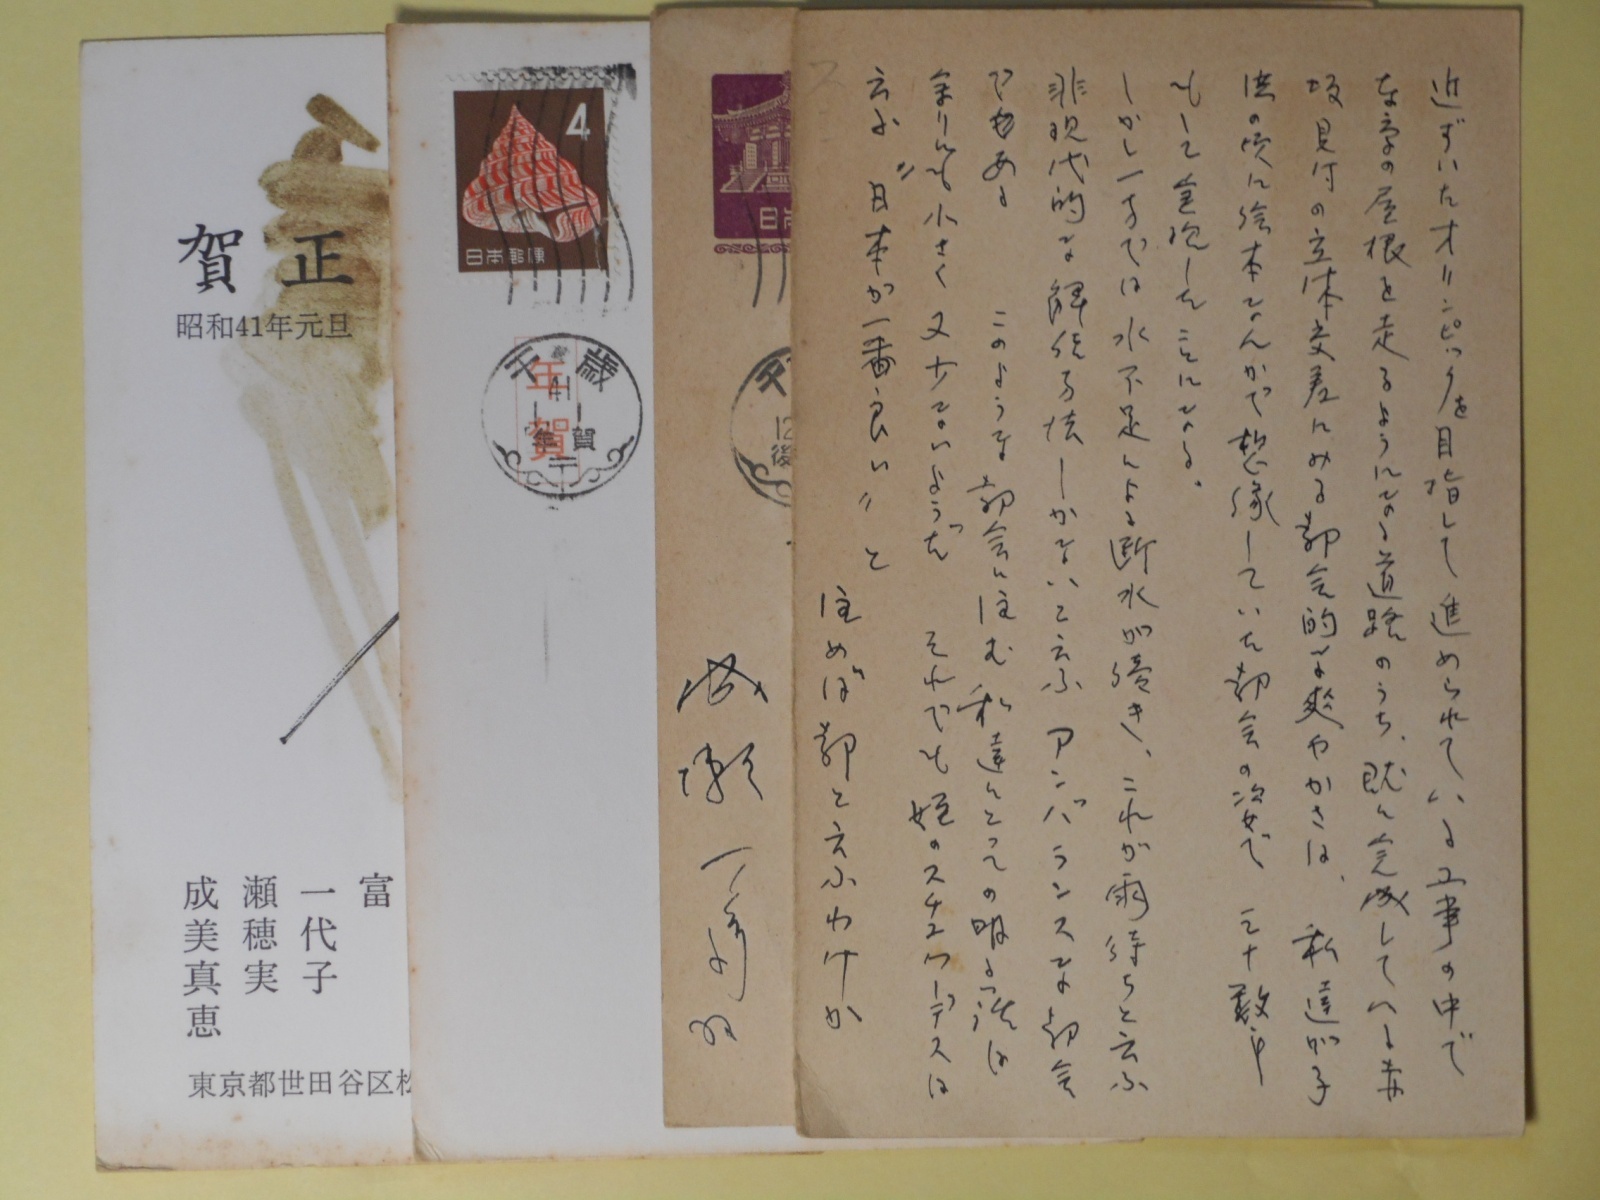 近ずいたオリンピックを目指して進められている工事の中で
な家の屋根を走るようになる道路のうち、既に完成している赤
坂見付の立体交差にみる都会的な爽やかさは、私達が子
供の頃に絵本なんかで想像していた都会の姿で 三十数年
もして
ことになる。
しかし一方では水不足による断水が続き、これが雨待ちと云ふ
非現代的な解決方法しかないと云ふアンバランスな都会
でもある このような都会に住む私達にとっての明るい
余りにも小さく又少ないようだ それでも
云ふ〝日本が一番良い〟と
住めば都と云ふわけか
日本
成瀬一富
4
日本郵便
千歳
41
年賀
年賀
12
後
賀正
昭和41年元旦
富
一代子
瀬穂実
成美真恵
東京都世田谷区松